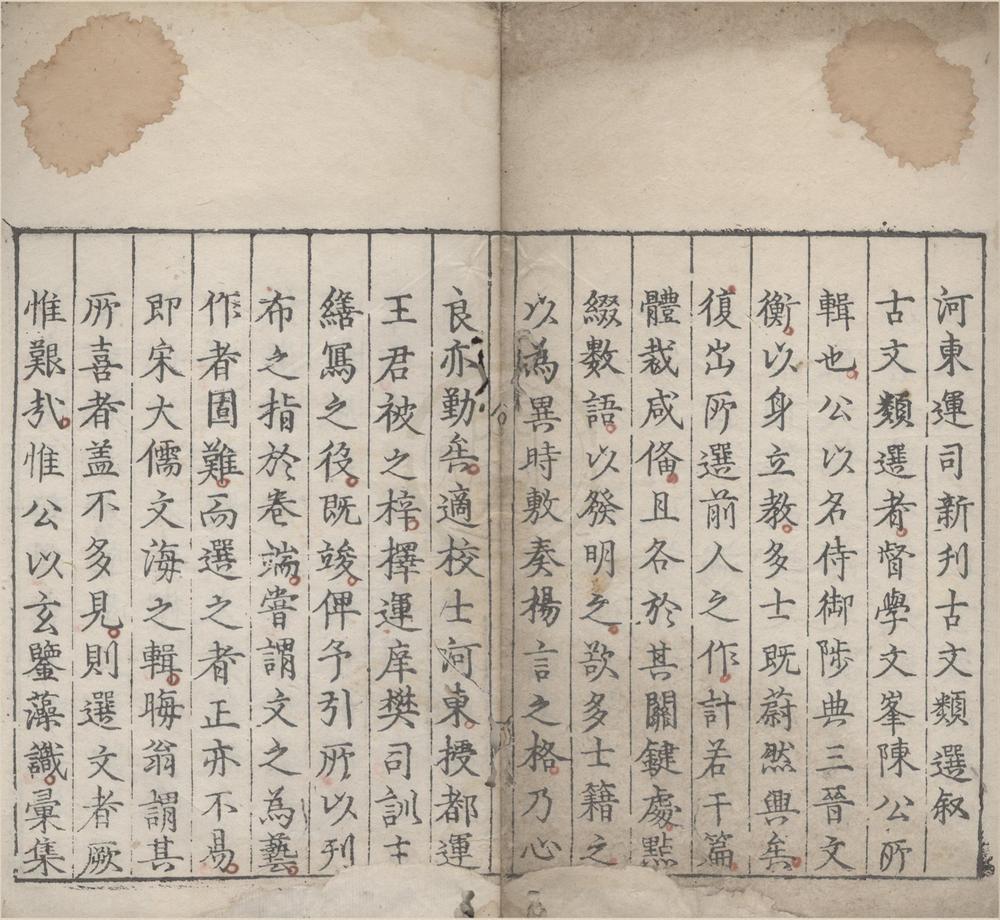 河東運司新刊古文類選叙
古文類選者督學文峯陳公所
輯也公以名侍御陟典三晉文
衡以身立教多士既蔚然興矣
復出所選前人之作計若干篇
體裁咸俻且各於其關鍵處點
綴數語以發明之欲多士籍之
以為異時敷奏揚言之格乃心
良亦勤矣適校士河東授都運
王君被之梓擇運庠樊司訓士
繕寫之役既竣俾予引所以刊
布之指於卷端嘗謂文之為藝
作者固難而選之者正亦不易
即宋大儒文海之輯晦翁謂其
所喜者盖不多見則選文者厥
惟艱哉惟公以玄鑒藻識彙集